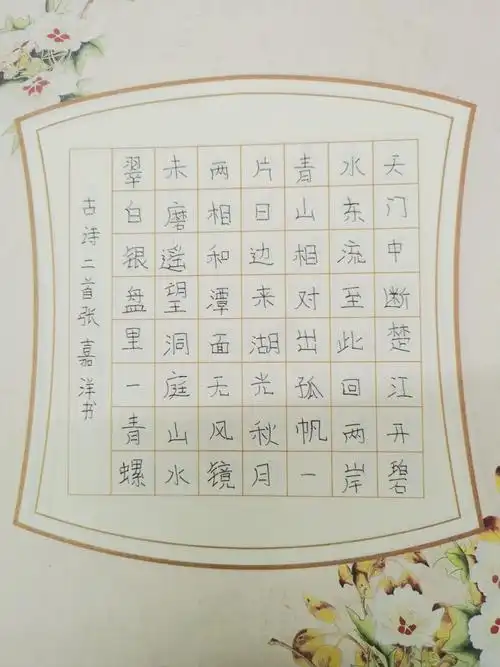 天门中断楚江开碧
水东流至此回两岸
青山相对出孤帆一
片日边来湖光秋月
两相和潭面无风镜
未磨遥望洞庭山水
翠白银盘里一青螺
古诗二首张嘉洋书